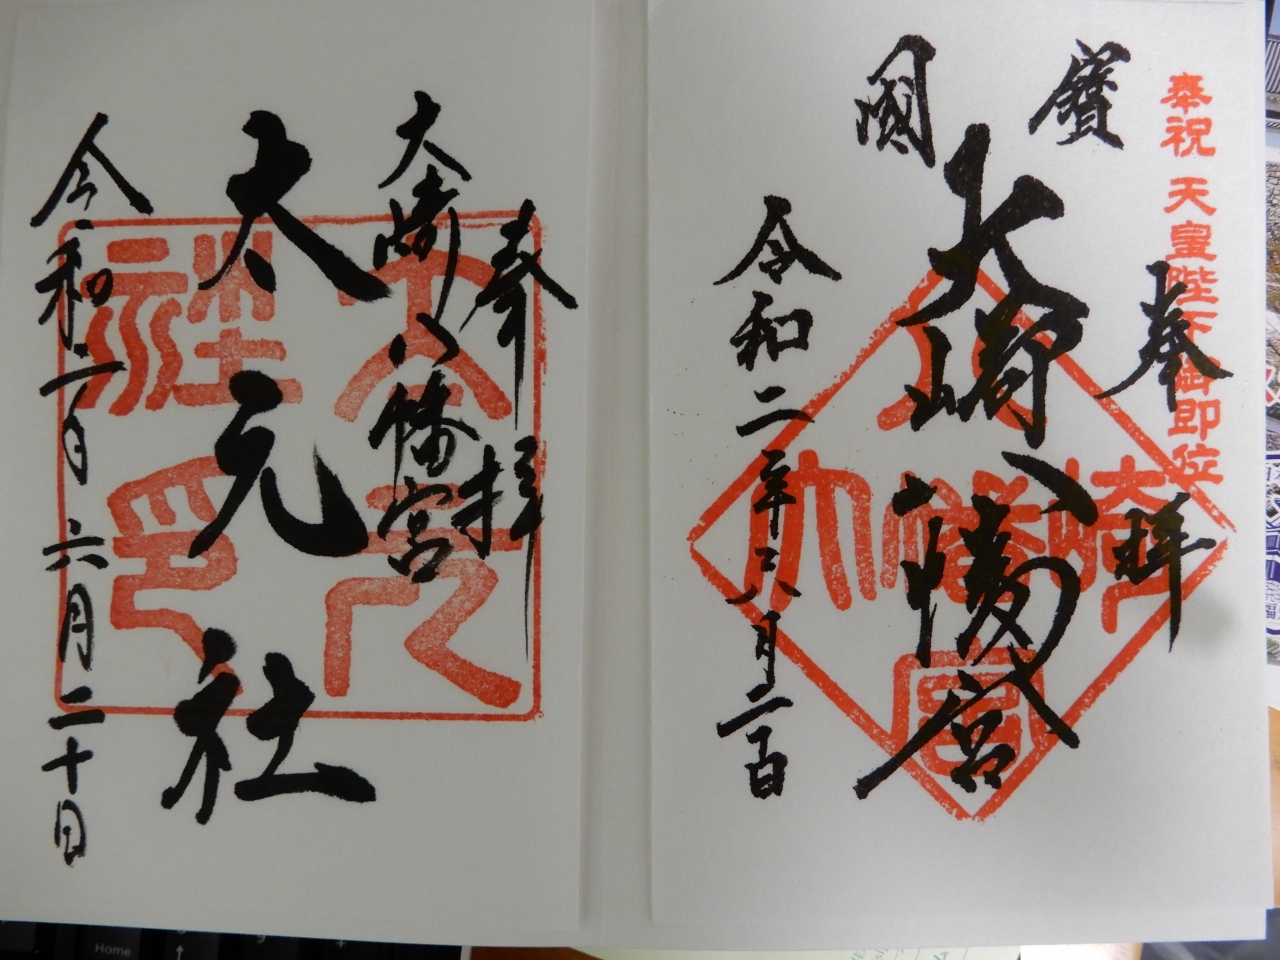 奉祝 天皇陛下御即位
奉拝
國 寶
大崎八幡宮
令和二年六月二十日
大崎八幡宮
奉拝
大崎八幡宮
大元社
令和二年六月二十日
大元社印
Home